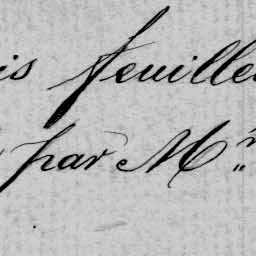 is feuille
par M.r